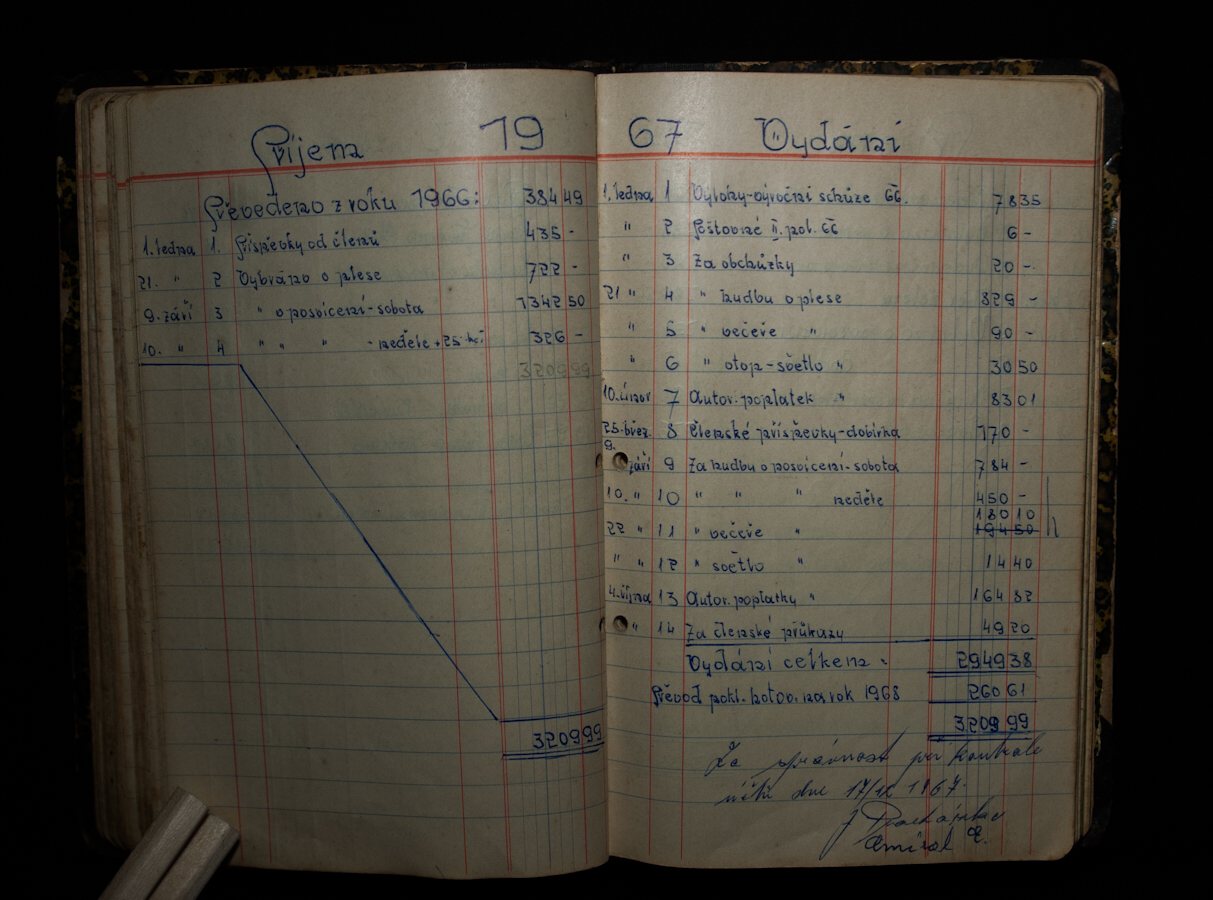 Příjem 19
Převedeno z roku 1966: 384 49
1. ledna 1. Příspěvky od členů 435 -
21. " 2 Vybráno o plese 722 -
9. září 3 " o posvícení - sobota 1342 50
10. " 4 " " " - neděle + 25 - 326 -
3209 99
3209 99
67 Vydání
1. ledna 1 Výlohy - výroční schůze 78 35
" 2 Poštovné II. pol. 6 -
" 3 Za obchůzky 20 -
21 " 4 " hudbu o plese 829 -
" 5 " večeře " 90 -
" 6 " otop - světlo " 30 50
10. únor 7 Autor. poplatek " 83 01
25. břez. 8 Členské příspěvky - dobírka 170 -
9. září 9 Za hudbu o posvícení - sobota 784 -
10. " 10 " " " neděle 450 -
180 10
22 " 11 " večeře " 194 50
" " 12 " světlo " 14 40
4. října 13 Autor. poplatky " 164 82
" 14 Za členské průkazy 49 20
Vydání celkem - 2949 38
Převod pokl. hotov. na rok 1968 260 61
3209 99
Za správnost při kontrole
dne 1967.